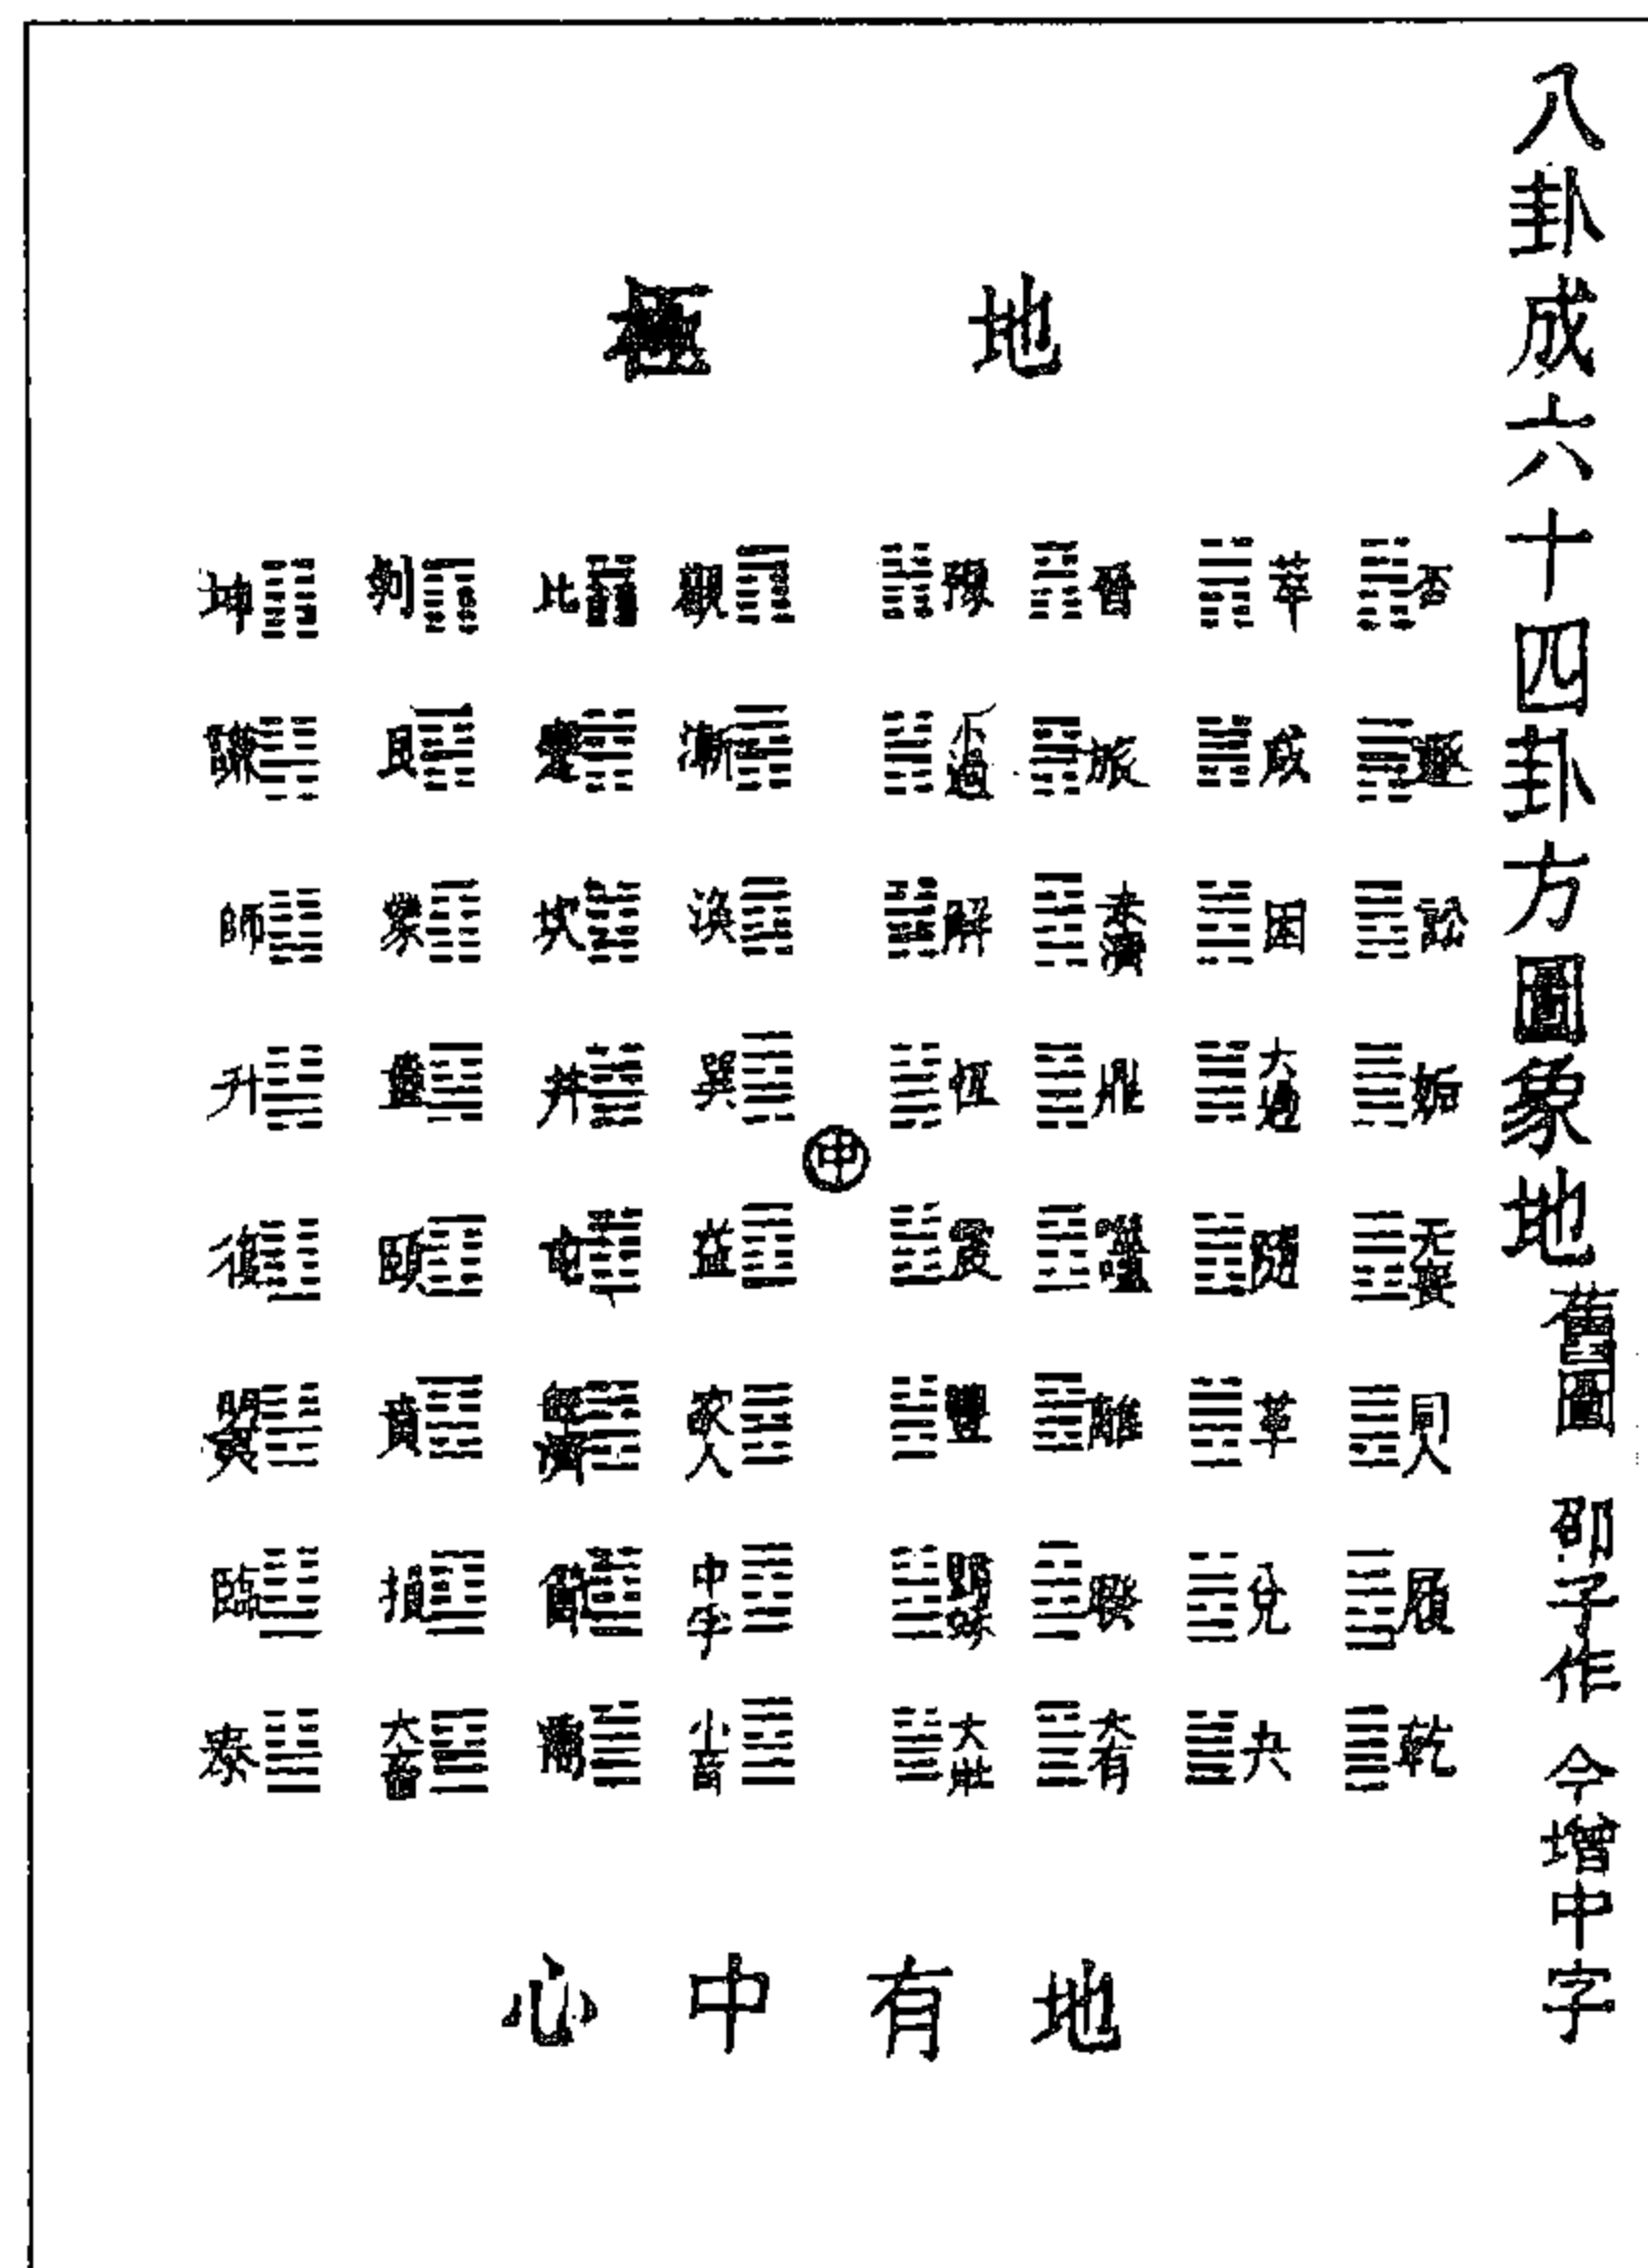 八卦成六十四卦方圖象地
舊圖 邵子作 今增中字
地極
否 萃 晉 豫 觀 比 剝 坤
遯 咸 旅 小過 漸 蹇 艮 謙
訟 困 未濟 解 渙 坎 蒙 師
姤 大過 鼎 恒 巽 井 蠱 升
中
无妄 隨 噬嗑 震 益 屯 頤 復
同人 革 離 豐 家人 既濟 賁 明夷
履 兌 睽 歸妹 中孚 節 損 臨
乾 夬 大有 大壯 小畜 需 大畜 泰
地有中心